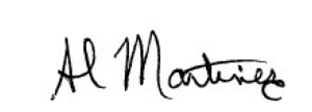 Al Martinez